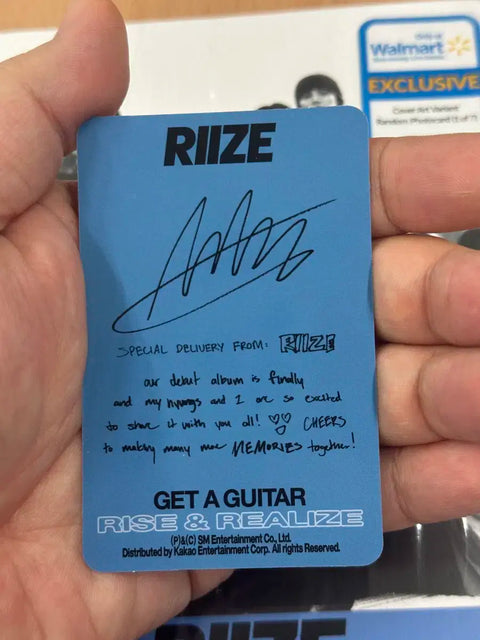 Only at
Walmart
EXCLUSIVE
Cover Art Variant
Random Photocard (1 of 7)
RIIZE
SPECIAL DELIVERY FROM: RIIZE
our debut album is finally
and my hyungs and I are so excited
to share it with you all! ♡♡♡ CHEERS
to making many more MEMORIES together!
GET A GUITAR
RISE & REALIZE
(P)&(C) SM Entertainment Co., Ltd.
Distributed by Kakao Entertainment Corp. All rights Reserved.
RIIZE